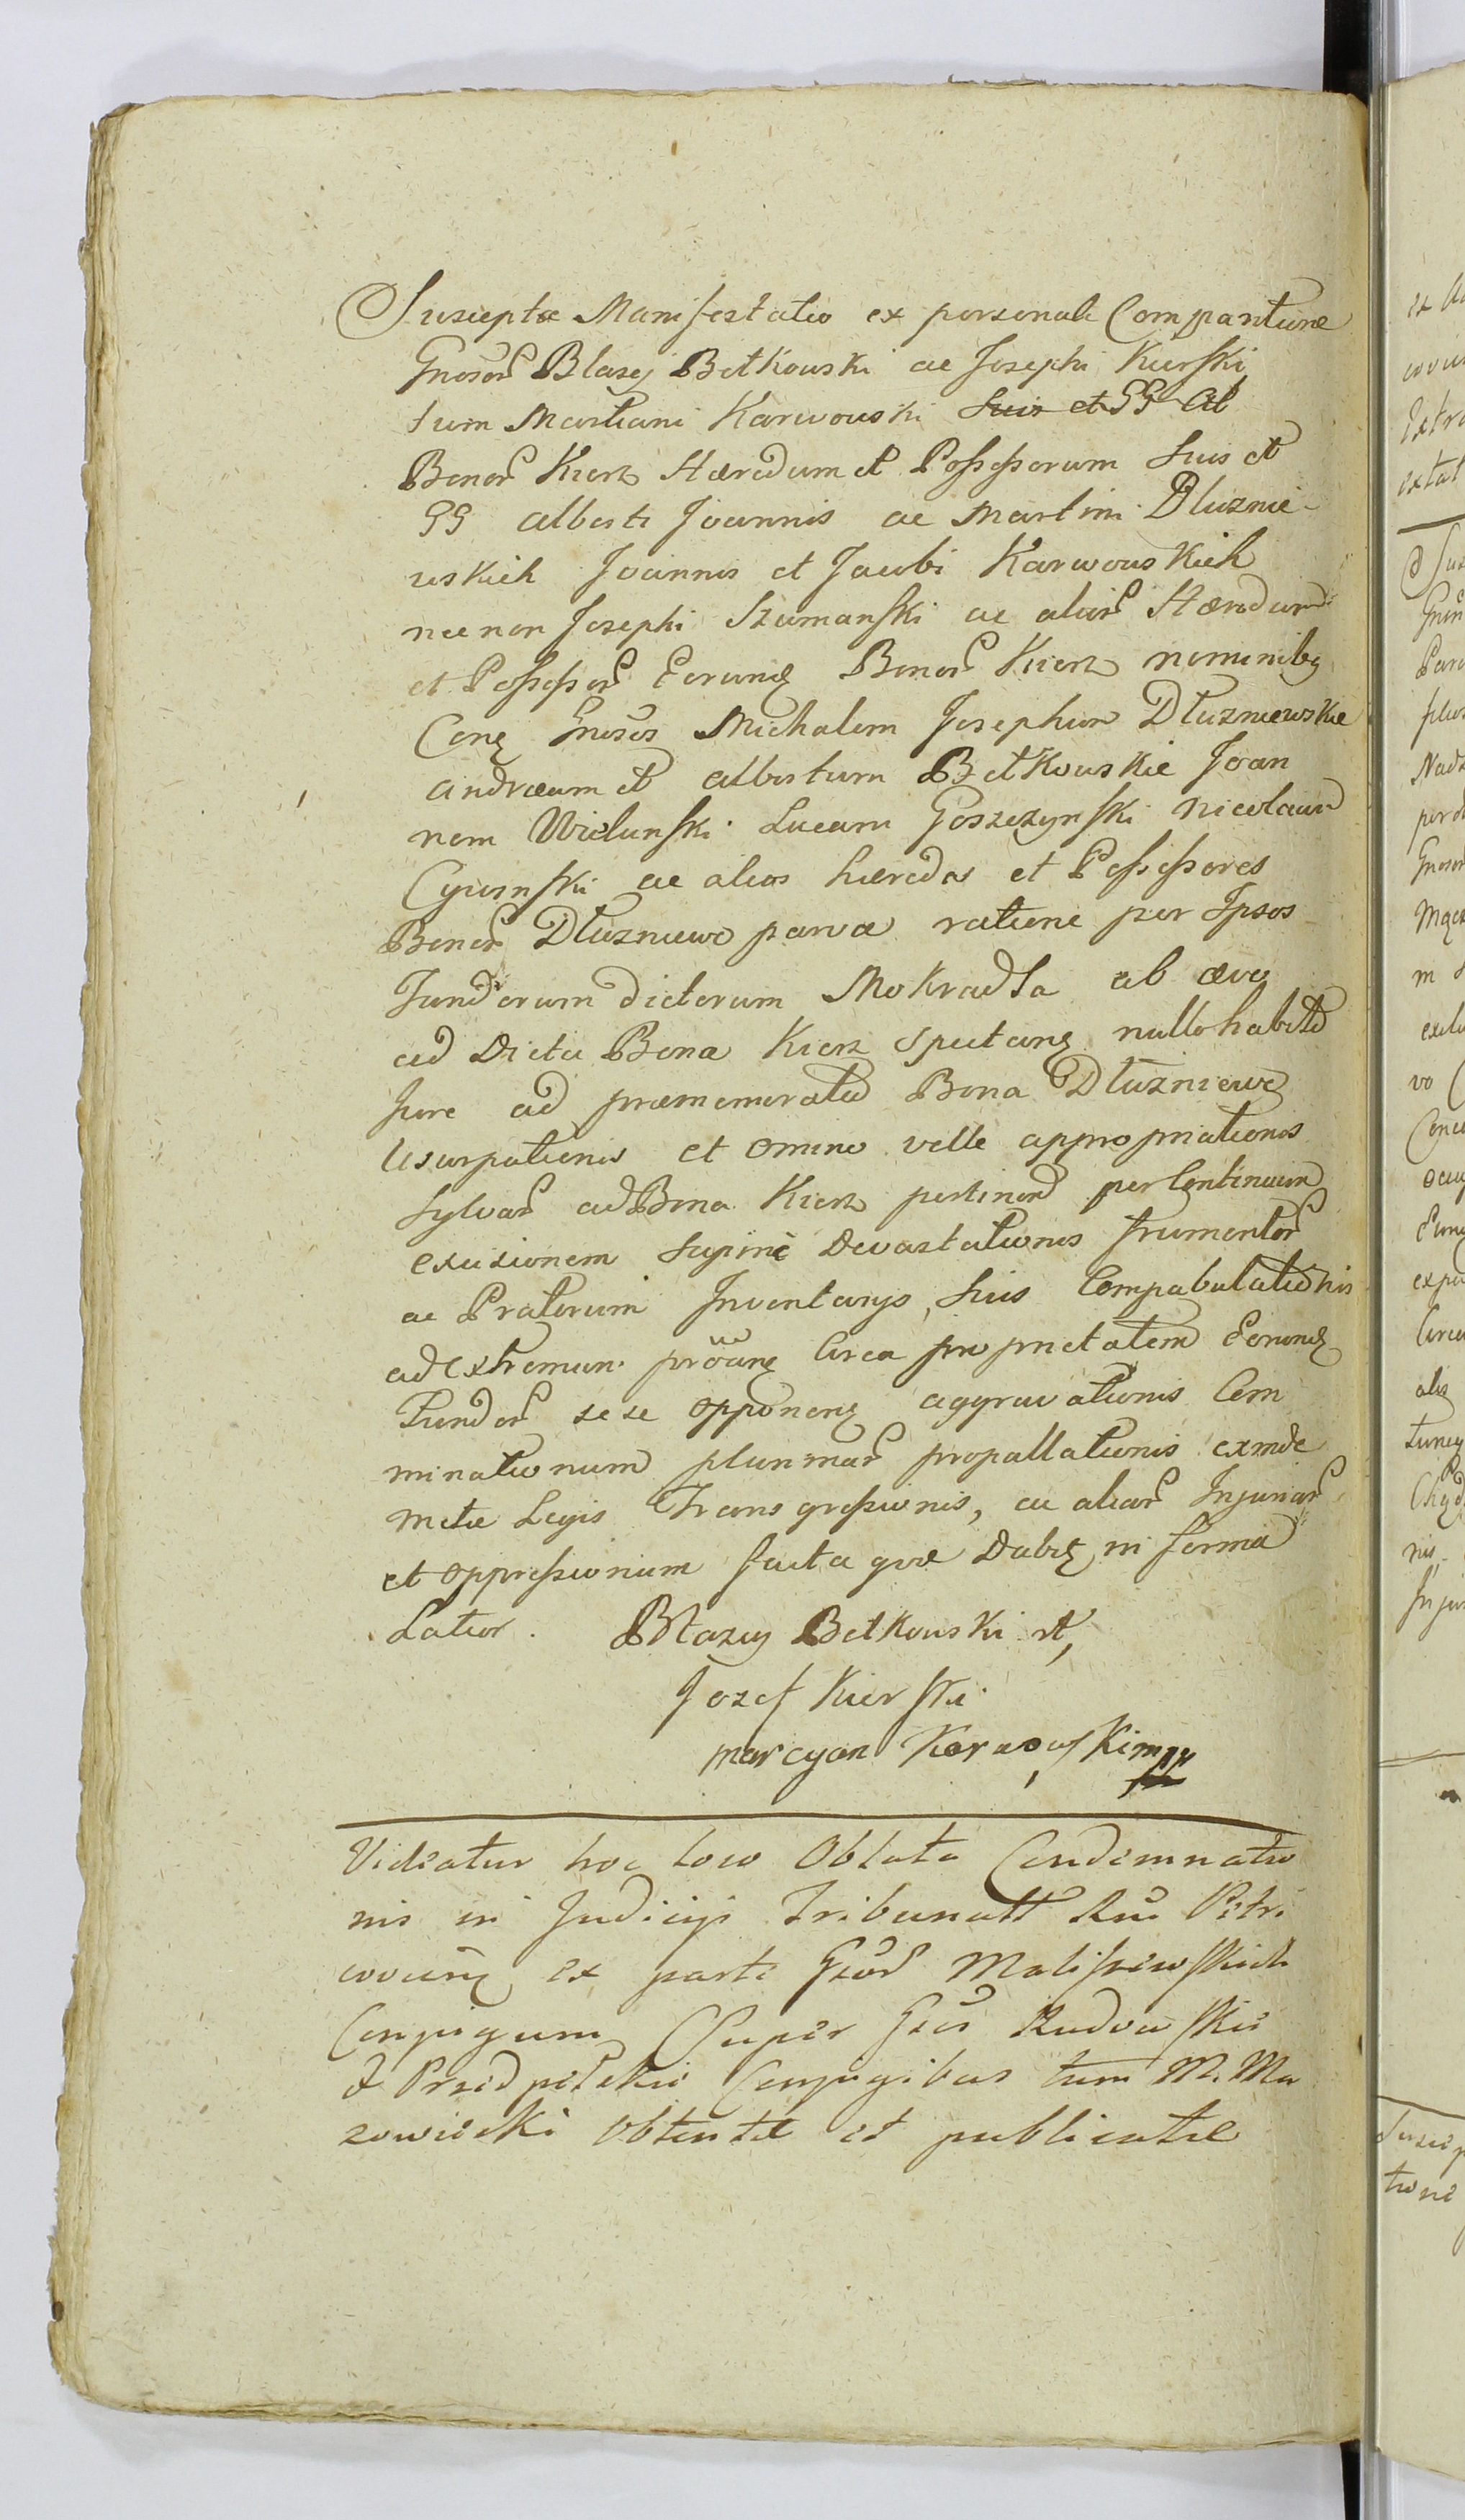 Suscepta Manifestatio ex personali Comparitione
Gnosor Blasej Betkowski ac Josephi Kierski
tum Martiani Karwowski Suis et GG Al
Bonor Kierz Hæredum et Possessorum Suis et
GG Alberti Joannis ac Martini Dluznie-
wskich Joannis et Jacobi Karwowskich
necnon Josephi Szumanski ac alior Hæredum
et Possessor Eorunq Bonor Kierz nominibq
Conq Gnosos Michalem Josephum Dluzniewskie
Andræum et Albertum Betkowskie Joan
nem Wielunski Lucam Goszczynski Nicolaum
ac alios hæredes et Possessores
Bonor Dluzniewo parva ratione per Ipsos
Fundorum dictorum Mokradla ab ævo
ad Dicta Bona Kierz Spectanq nullo habito
Jure ad præmemorata Bona Dluzniewo
Usurpationis et omino velle appropriationis
Sylvar ad Bona Kierz pertinen per Continuam
excisionem Supine Devastationis frumentor
ac Pratorum Inventarijs Suis Compabulationis
ad extremum proanq Circa proprietatem Eorunq
Fundor sese opponenq aggravationis Com
minationum plurimar propallationis exinde
metæ Legis Transgressionis, ac aliar Injuriar
et oppressionum facta quæ Dabit in forma
Latior. Błazey Betkowski et,
Jozef Kierski
marcyan Karwowski mp
Videatur hoc loco Oblata Condemnatio
nis in Judicijs Tribunatt Rni Petri
covienq ex parte Gsor Maliszewskich
Conjugum Super Gsos Rudowskie
& Przedpełskie Conjugibus tum M. Ma
zowiecki Obtentæ et publicatæ